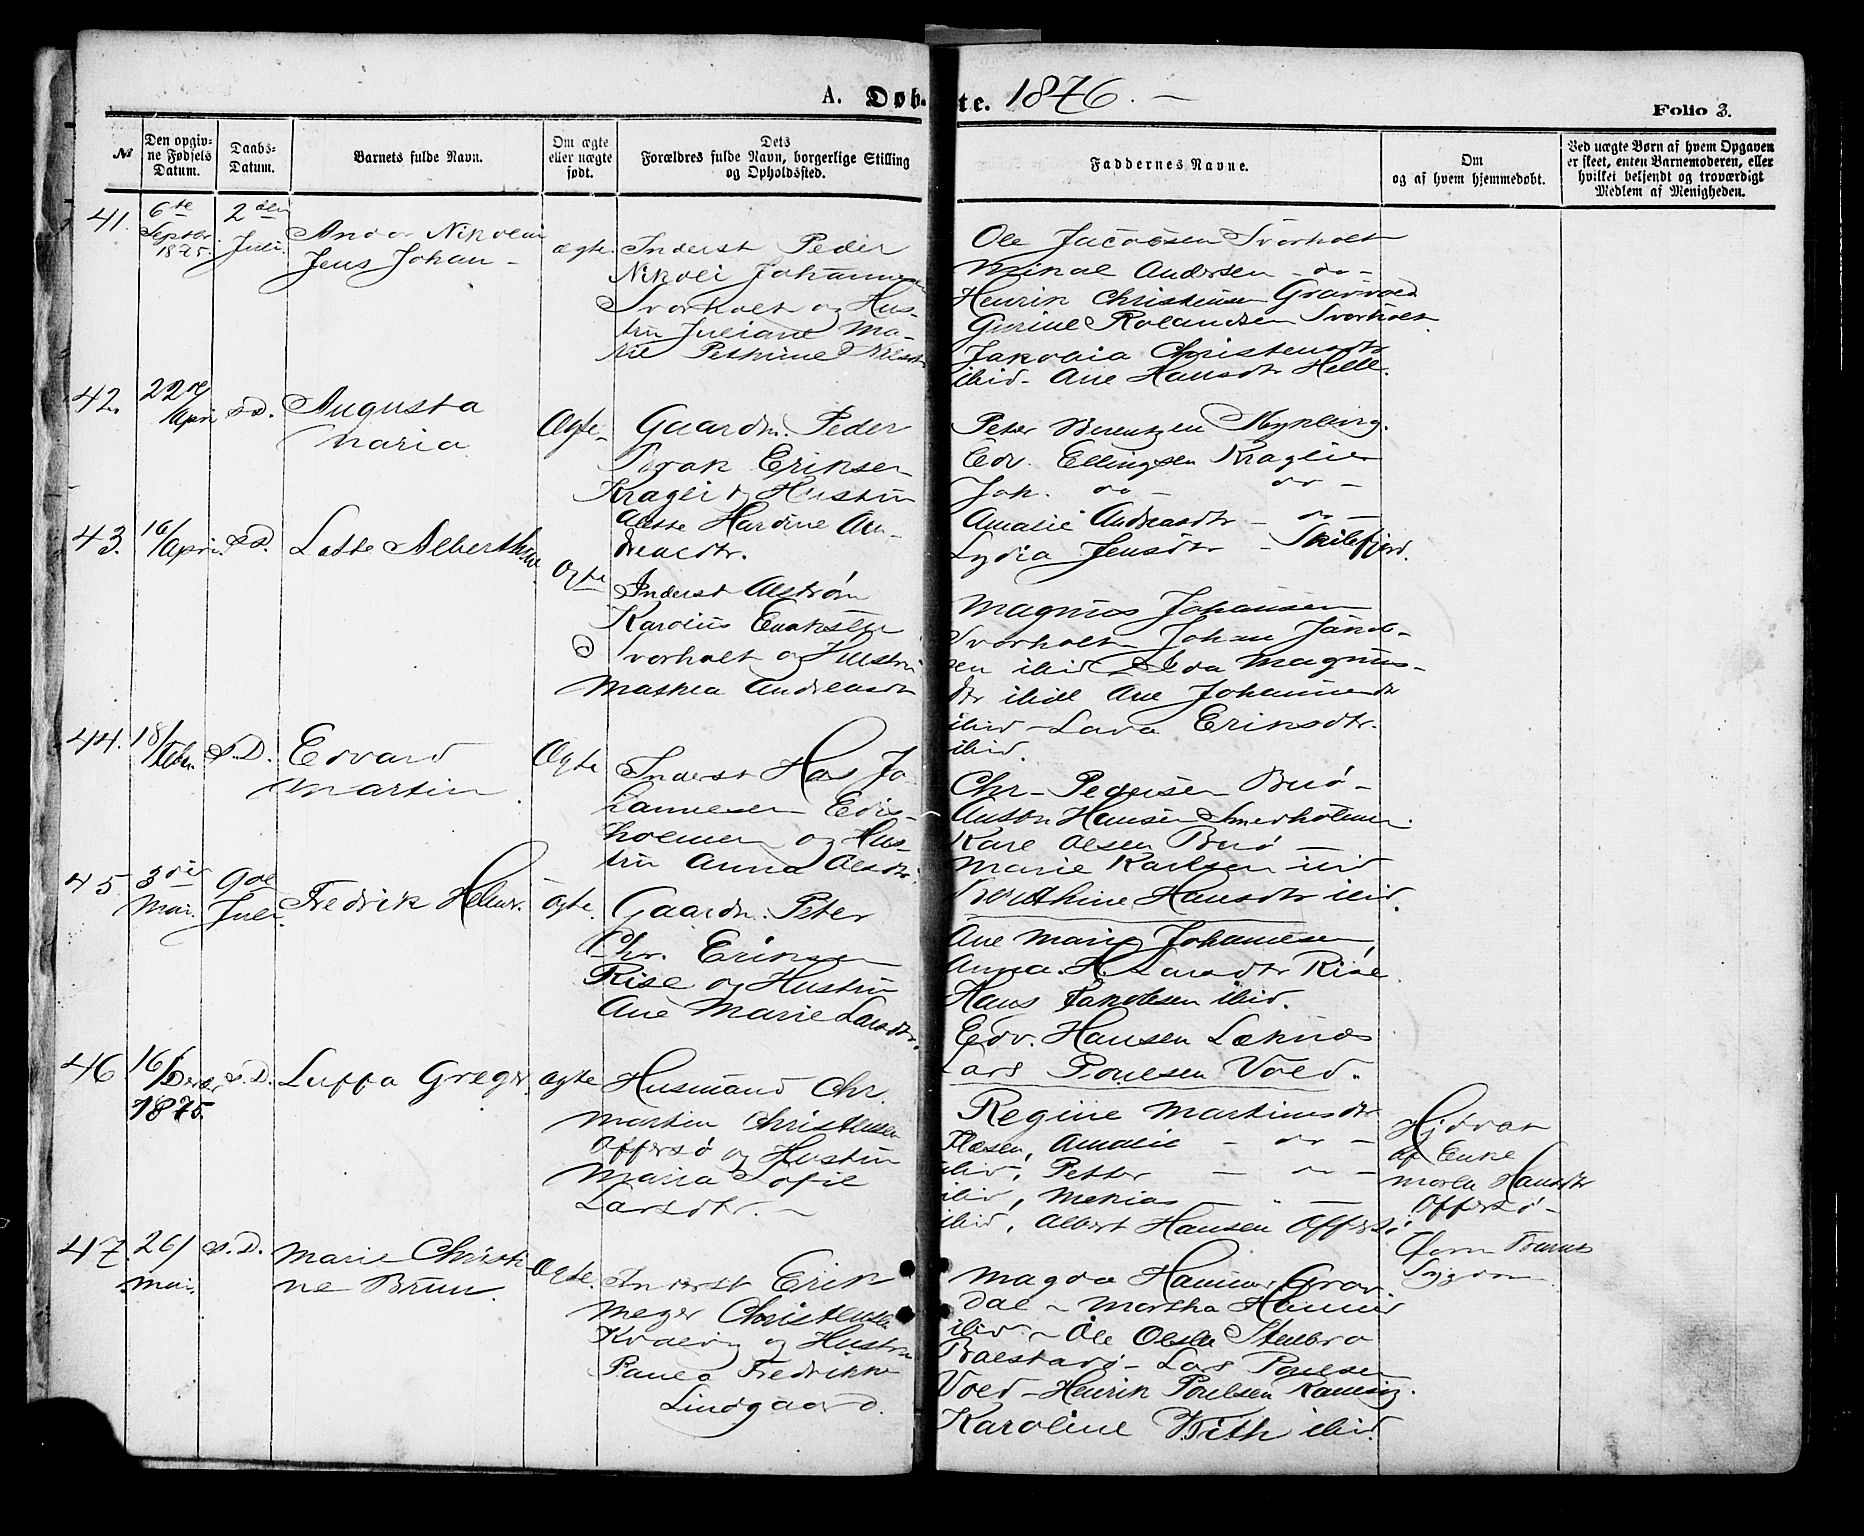 A. Døb-
te. 1876. —
Folio 3.
№
Den opgiv-
ne Fødsels
Datum.
Daabs-
Datum.
Barnets fulde Navn.
Om ægte
eller uægte
født.
Dets
Forældres fulde Navn, borgerlige Stilling
og Opholdssted.
Faddernes Navne.
Om
og af hvem hjemmedøbt.
Ved uægte Børn af hvem Opgaven
er skeet, enten Barnemoderen, eller
hvilket bekjendt og troværdigt
Medlem af Menigheden.
41.
6te
Septbr
1875.
2den
Juli.
Nikolai
Jens Johan -
ægte
Inderst Peder
Nikolai
Svorholt og Hus-
tru Juliane Ma-
rie
Ole Jacobsen Svorholt
Mikal Andersen - do -
Henrik Christensen
Gurine Rolandsen Svorholt
Christensdtr
ibid - Ane Hansdtr Helle.
42.
22de
April
s.D.
Augusta
Maria
Ægte -
Gaardm. Peder
Eriksen
Kraglei & Hustru
Hardine An-
dreasdtr.
Peter Berentzen Mykling.
Edv. Ellingsen Kraglei
Joh. do - do -
Amalie Andreasdtr - do -
Lydia Jensdtr - Skilefjord.
43.
16/April.
s.D.
Lotte Alberthine
Ægte
Inderst
Karolius
Svorholt og Hustru
Andreasdtr
Magnus Johansen
Svorholt Johan
sen ibid Magnus-
dtr ibid Ane
ibid - Lava Eriksdtr.
ibid
44.
18/Febr.
s.D.
Edvard
Martin
Ægte
Inderst Hans Jo
hannesen
holmen og Hus-
tru Anna Olsdtr.
Chr - Pedersen Buø -
Anton Hansen Smedholmen.
Karl Olsen Buø -
Marie Karlsen ibid
Berthine Hansdtr ibid.
45.
3die
Mai.
9de
Juli.
Fredrik Helmr.
Ægte.
Gaardm. Peter
Chr. Eriksen
Rise og Hustru
Ane Marie Larsdtr.
Ane Marie Johannesen
Anna. H. Larsdtr Rise.
Hans Jakobsen ibid.
Edv. Hansen Leknes
Lars Poulsen Vold.
46.
16/Decbr
1875.
s.D.
Luppa Greger.
ægte
Husmand Chr.
Martin Christensen
Offersø og Hustru
Maria Sofie
Larsdtr. -
Regine Martinusdtr
Amalie - do -
ibid, Petter - do -
ibid, Mekias - " -
ibid, Albert Hansen Offersø.
Hjdøbt
af Enke
Hansdtr
Offersø -
Barnets
Sygdom
47.
26/
Mai.
s.D.
Marie Christi
ne Brun.
Ægte.
Inderst Erik
Meyer Christensen
og Hustru
Paula Fredrikke
Lindgaard.
Magda Hammer Grav-
dal - Martha Hammer
ibid - Ole Olsen Stenbro
Balstad - Lars Poulsen
Vold - Henrik Poulsen
Karoline With ibid.